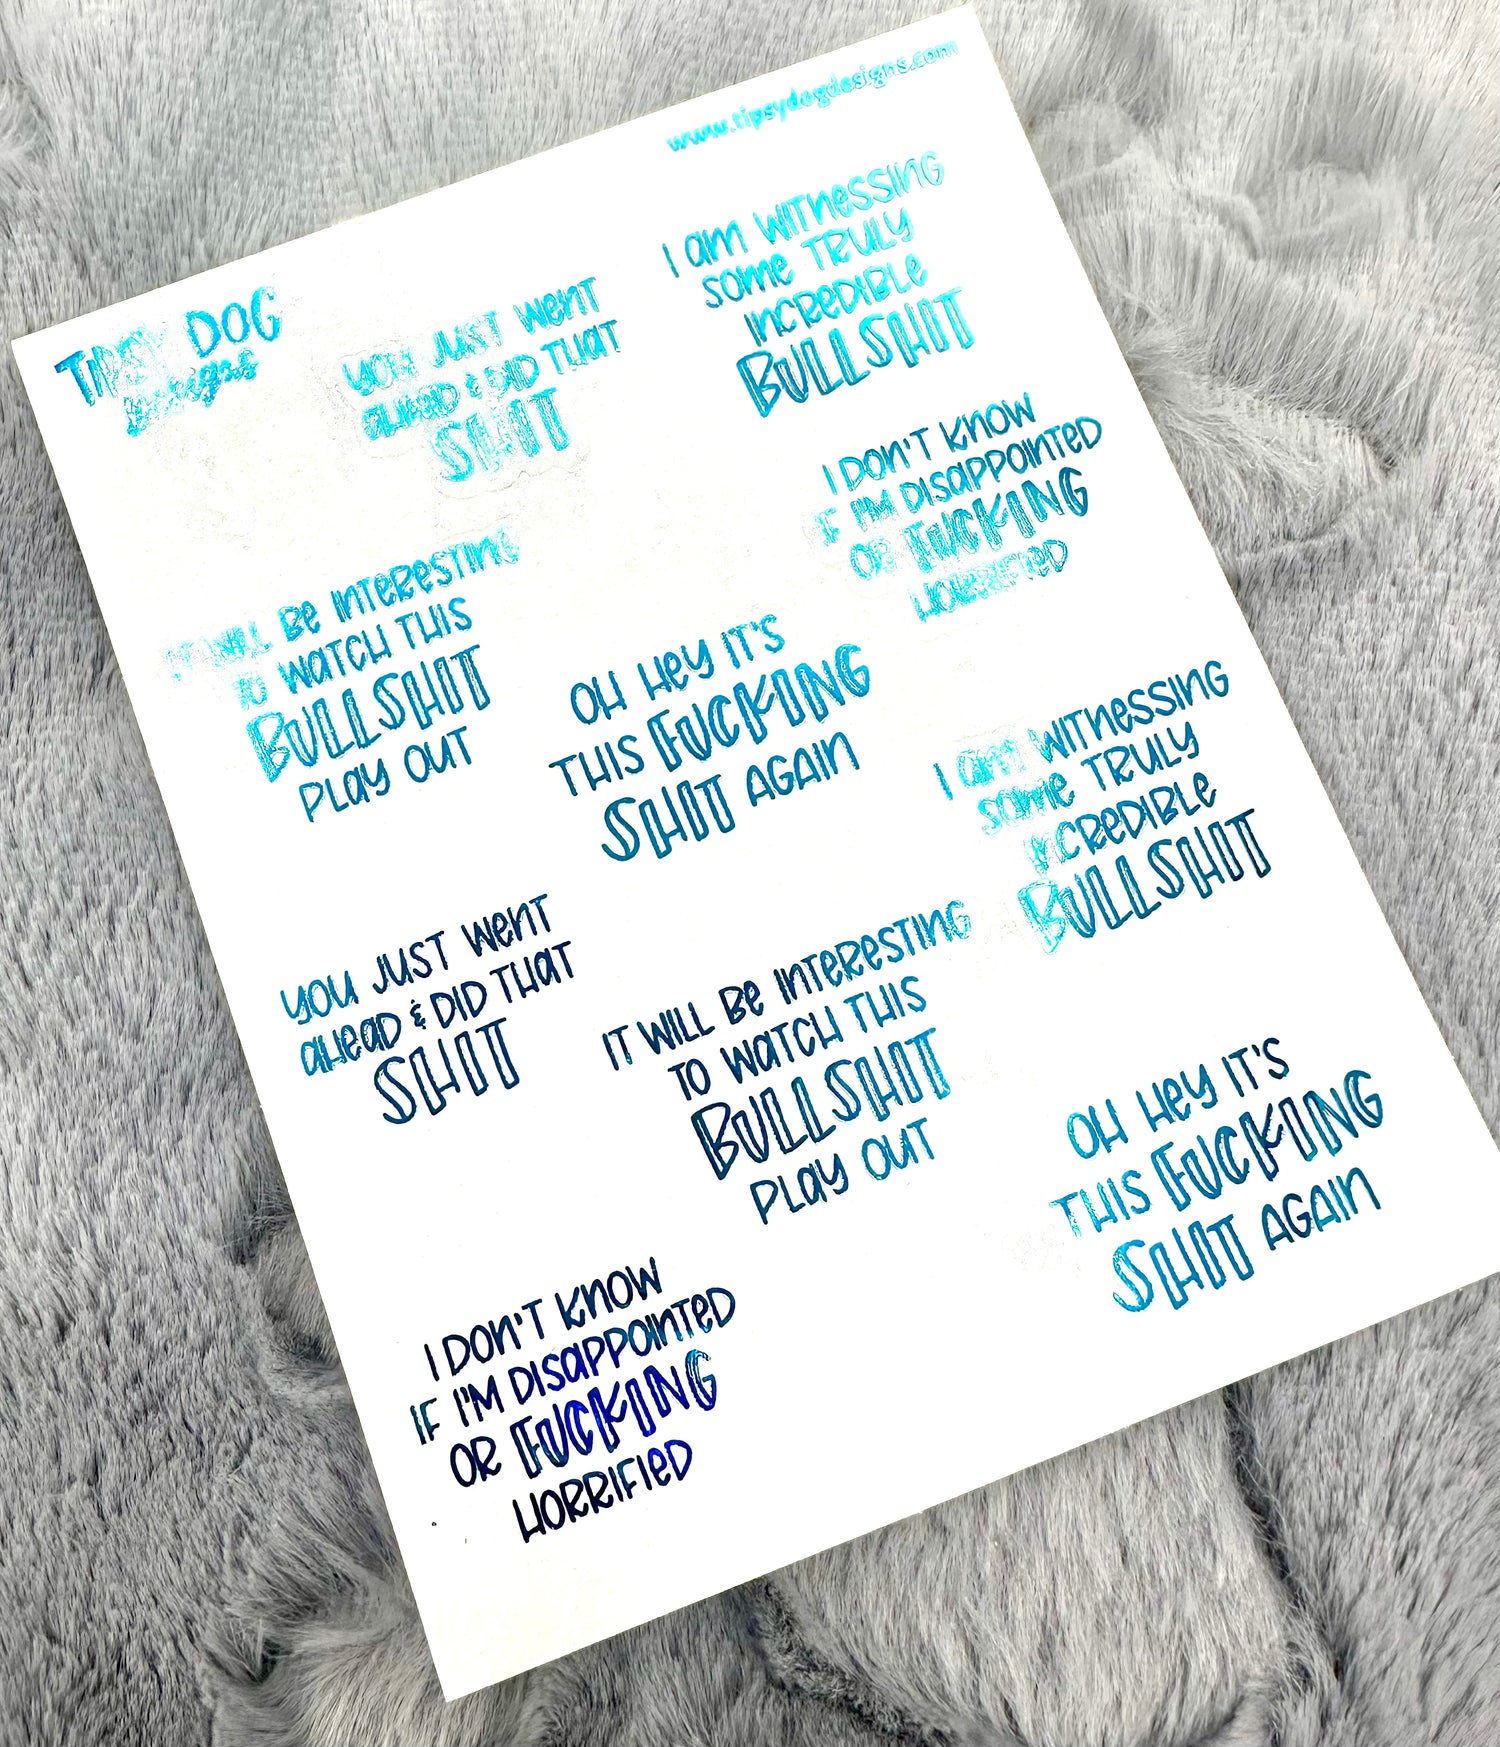 www.tipsydogdesigns.com
TIPSY DOG
Designs
YOU JUST WENT
AHEAD & DID THAT
SHIT
I AM WITNESSING
SOME TRULY
INCREDIBLE
BULLSHIT
I DON'T KNOW
IF I'M DISAPPOINTED
OR FUCKING
HORRIFIED
IT WILL BE INTERESTING
TO WATCH THIS
BULLSHIT
PLAY OUT
OH HEY IT'S
THIS FUCKING
SHIT AGAIN
I AM WITNESSING
SOME TRULY
INCREDIBLE
BULLSHIT
YOU JUST WENT
AHEAD & DID THAT
SHIT
IT WILL BE INTERESTING
TO WATCH THIS
BULLSHIT
PLAY OUT
OH HEY IT'S
THIS FUCKING
SHIT AGAIN
I DON'T KNOW
IF I'M DISAPPOINTED
OR FUCKING
HORRIFIED